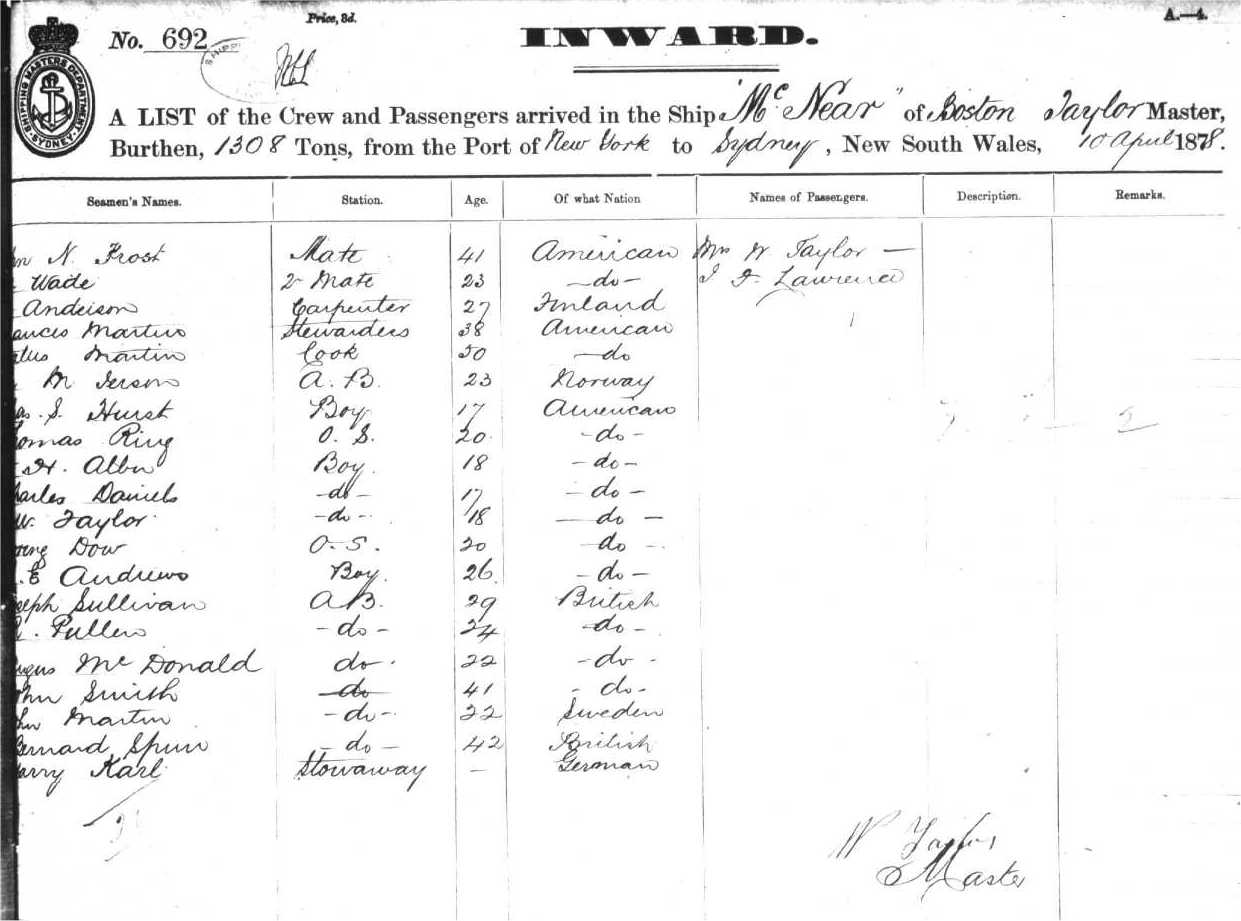 Price, 3d.
A.—4.
No. 692
INWARD.
SHIPPING MASTERS DEPARTMENT SYDNEY
A LIST of the Crew and Passengers arrived in the Ship "Mc Near" of Boston Taylor Master,
Burthen, 1308 Tons, from the Port of New York to Sydney, New South Wales, 10 April 1878.
Seamen's Names. Station. Age. Of what Nation Names of Passengers. Description. Remarks.
N. Frost Mate 41 American Mrs W Taylor —
Wade 2 Mate 23 — do — Lawrence
Carpenter 27 Finland
Martin Stewardess 38 American
Martin Cook 50 — do
M A. B. 23 Norway
S. Hurst Boy 17 American
Ring O. S. 20 - do -
H. Boy. 18 - do -
Daniels - do - 17 - do -
W. Taylor - do - 18 — do —
Dow O. S. 20 - do -
E Andrews Boy. 26 - do -
Sullivan A.B. 29 British
Pullen - do - 24 - do -
Mc Donald do - 22 - do -
Smith - do 41 - do -
Martin - do - 22 Sweden
Bernard - do - 42 British
Karl Stowaway — German
W Taylor
Master